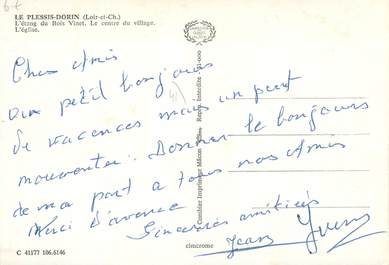 LE PLESSIS-DORIN (Loir-et-Ch.)
L'étang du Bois Vinet. Le centre du village.
L'église.
Chers Amis
un petit bonjour
de vacances mais un peut
mouventer. Donner le bonjour
de ma part a tous nos Amis
Merci d'avance
Sincères amitiés
Jean
Combier Imprimeur Mâcon
cimcrome
C 41177 106.6146